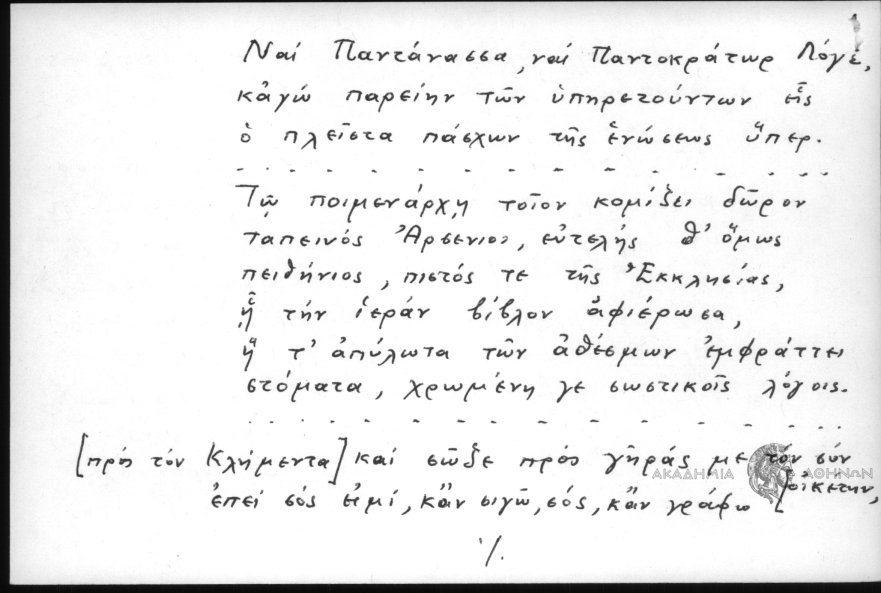 Ναί Παντάνασσα, ναί Παντοκράτωρ Λόγε,
κἀγώ παρείην τῶν ὑπηρετούντων εἷς
ὁ πλεῖστα πάσχων τῆς ἑνώσεως ὕπερ.
. . . . . . . . . . . . . . . . . . .
Τῷ ποιμενάρχῃ τοῖον κομίζει δῶρον
ταπεινός Ἀρσένιος, εὐτελής θ' ὅμως
πειθήνιος, πιστός τε τῆς Ἐκκλησίας,
ᾗ τήν ἱεράν βίβλον ἀφιέρωσα,
ἥ τ' ἀπύλωτα τῶν ἀθέσμων ἐμφράττει
στόματα, χρωμένη γε σωστικοῖς λόγοις.
. . . . . . . . . . . . . . . . . . .
[πρός τόν Κλήμεντα] καί σῶζε πρός γῆράς με τόν σόν
[οἰκέτην,
ἐπεί σός εἰμί, κἄν σιγῶ, σός, κἄν γράφω
ΑΚΑΔΗΜΙΑ ΑΘΗΝΩΝ
./.